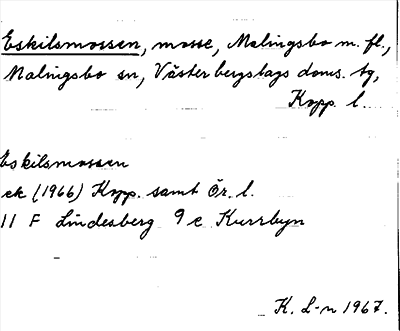 Eskilsmossen, mosse, Malingsbo m. fl.,
Malingsbo sn, Väster bergslags doms. tg,
Kopp. l.
Eskilsmossen
ek (1966) Kopp. samt Ör. l.
11 F Lindesberg 9 c Kurrbyn
K. L-n 1967.